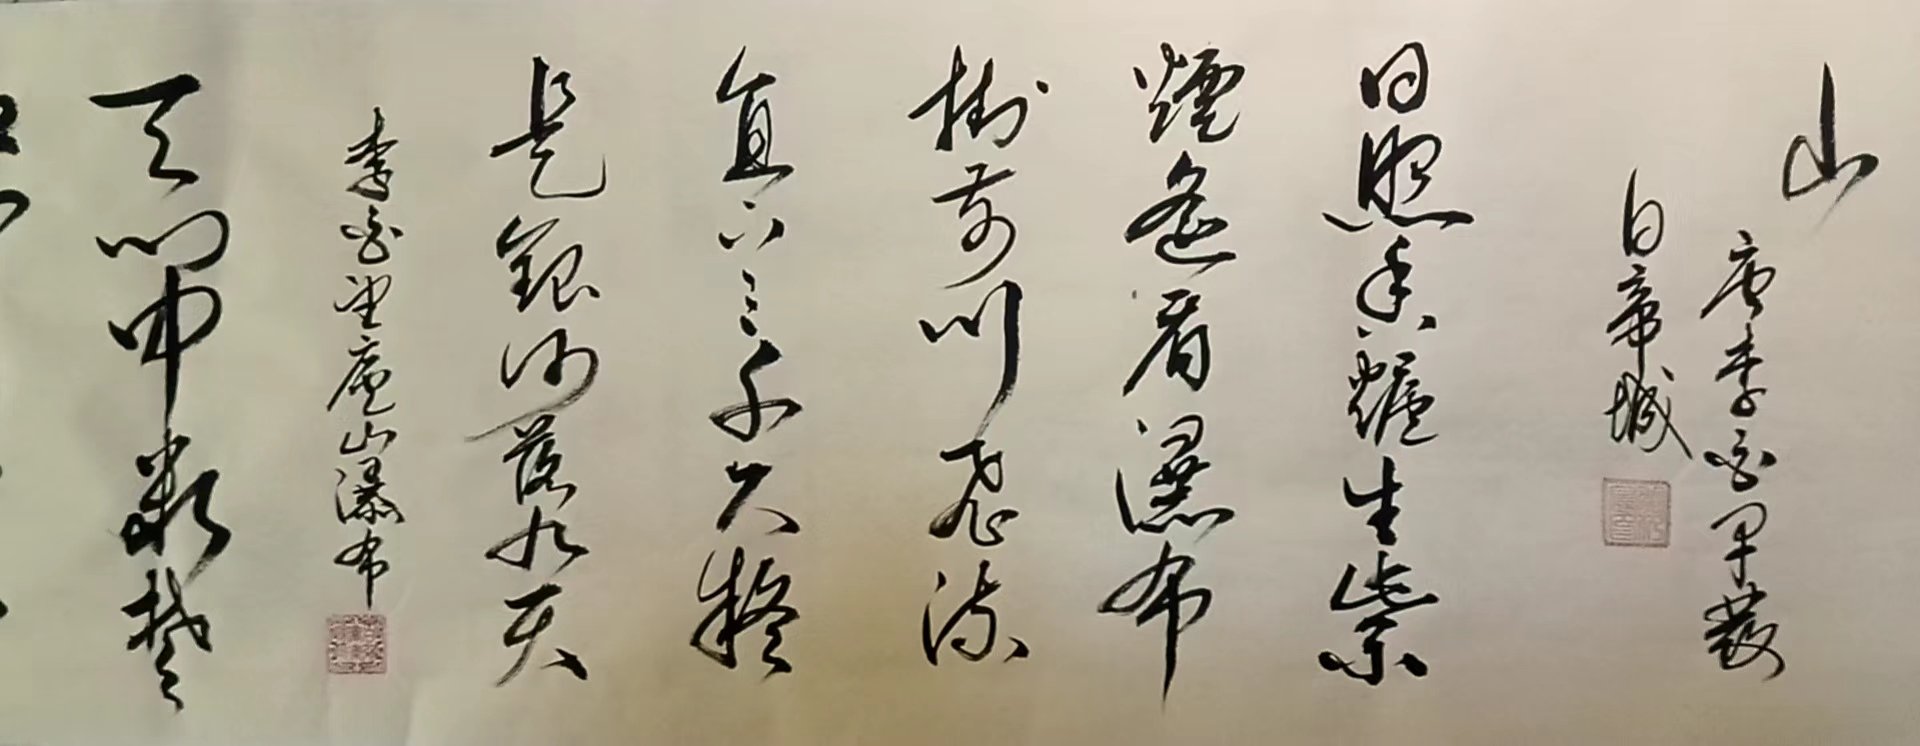 山
唐李白早發
白帝城
日照香爐生紫
煙遙看瀑布
掛前川飛流
直下三千尺疑
是銀河落九天
李白望廬山瀑布
天門中斷楚